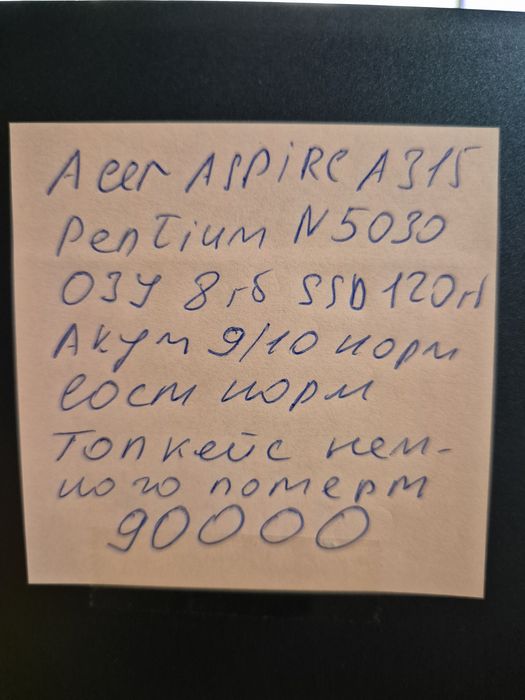 Acer ASPIRE A315
Pentium N5030
ОЗУ 8гб SSD 120гб
Акум 9/10 норм
сост норм
Топкейс нем-
ного потерт
90000